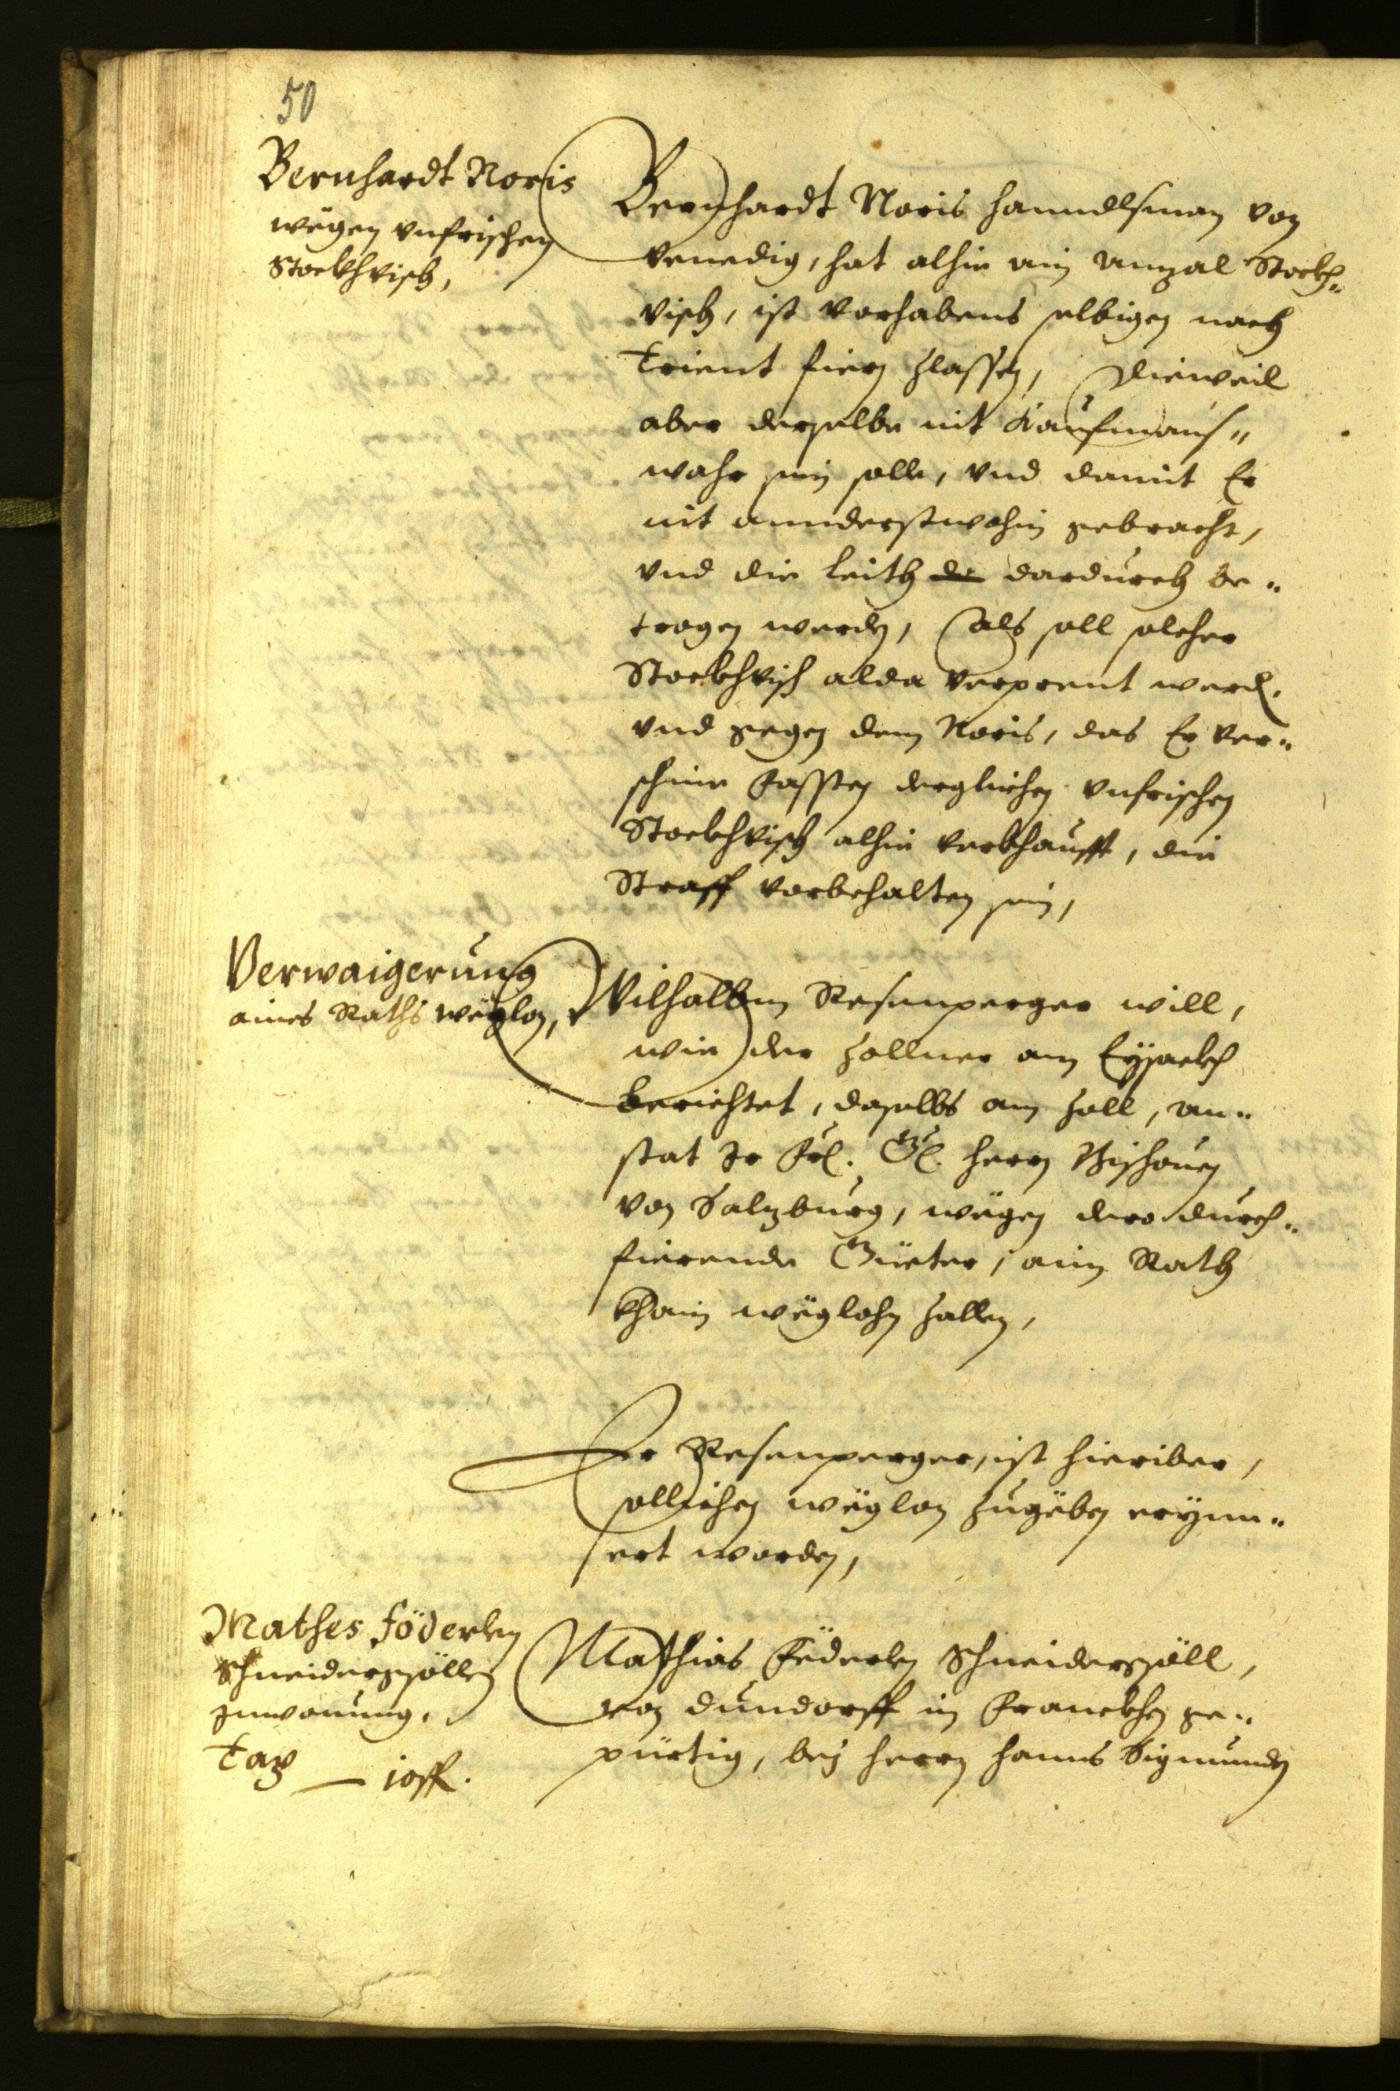 50
Bernhardt Noris
wëgen vnfrischen
Stockhvisch,
Bernhardt Noris hanndlsman von
Venedig, hat alhie ain Anzal Stockh„
visch, ist vorhabens selbigen nach
Trient fiern zlassen, Dieweil
aber derselbe nit Kaufmans„
wahr sein solle, vnd damit Er
nit annderstwohin gebracht,
vnd die Leith de dardurch be„
trogen werden, als soll solcher
Stockhvisch alda verprent werd.
vnd gegen dem Noris, das Er ver„
schine Fassten dergleichen vnfrischen
Stockhvisch alhie verkhaufft, die
Straff vorbehalten sein,
Verwaigerung
aines Raths wëglon,
Wilhalbm Resenperger will,
wie der Zollner am Eÿsackh
berichtet, daselbs am Zoll, an„
stat Ir Frl. Gl. herrn Bischouen
von Salzburg, wëgen dero durch„
fierende Güeter, aim Rath
khain wëglohn Zallen,
Er Resenperger, ist hieriber,
sollichen wëglon zugëben erÿnn„
ert worden,
Mathes Föderlen
Schneidergsöllen
Innwonung.
Tax — 10 ff.
Mathias Föderlen Schneidergsöll,
von Dundorff in Franckhen ge„
pürtig, beÿ herrn Hanns Sigmunden